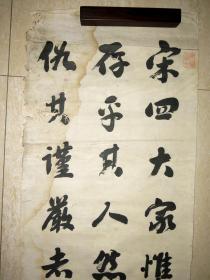 宋四大家惟
存乎其人然
似其谨嚴者